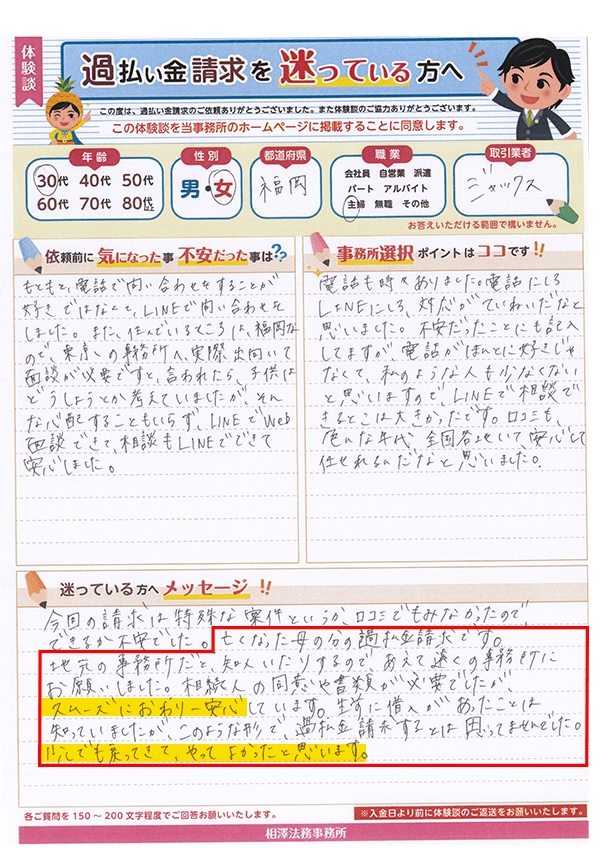 体験談
過払い金請求を迷っている方へ
この度は、過払い金請求のご依頼ありがとうございました。また体験談のご協力ありがとうございます。
この体験談を当事務所のホームページに掲載することに同意します。
年齢
30代 40代 50代
60代 70代 80代
性別
男・女
都道府県
福岡
職業
会社員 自営業 派遣
パート アルバイト
主婦 無職 その他
取引業者
ジャックス
お答えいただける範囲で構いません。
依頼前に気になった事 不安だった事は??
もともと、電話で問い合わせをすることが
好きではなくて、LINEで問い合わせを
しました。また、住んでいるところは、福岡な
ので、東京への事務所へ、実際出向いて
面談が必要ですと、言われたら、子供は
どうしようとか考えていましたが、そん
な心配することもいらず、LINEでWeb
面談できて、相談もLINEでできて
安心しました。
事務所選択ポイントはココです!!
電話も時々ありました。電話にしろ
LINEにしろ、対応がていねいだなと
思いました。不安だったことにも記入
してますが、電話がほんとに好きじゃ
なくて、私のような人も少なくない
と思いますので、LINEで相談で
きるとこは大きかったです。口コミも、
色んな年代、全国各地といて、安心して
任せれるんだなと思いました。
迷っている方へメッセージ!!
今回の請求は特殊な案件というか、口コミでもみなかったので
できるか不安でした。亡くなった母の分の過払金請求です。
地元の事務所だと、知人いたりするので、あえて遠くの事務所に
お願いしました。相続人の同意や書類が必要でしたが、
スムーズにおわり一安心しています。生前に借入があったことは
知っていましたが、このような形で、過払金請求するとは思ってませんでした。
少しでも戻ってきて、やってよかったと思います。
各ご質問を150～200文字程度でご回答お願いいたします。
※入金日より前に体験談のご返送をお願いいたします。
相澤法務事務所